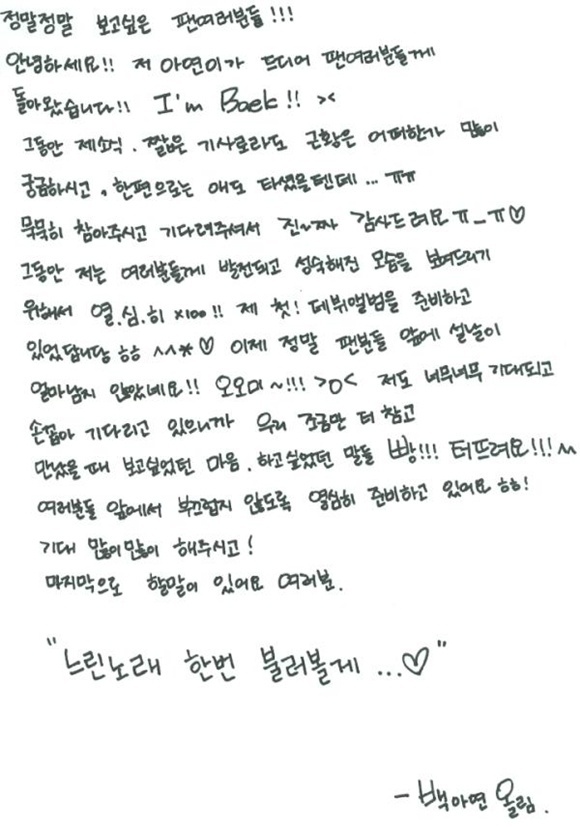 정말정말 보고싶은 팬여러분들!!!
안녕하세요!! 저 아연이가 드디어 팬여러분들께
돌아왔습니다!! I'm Baek!! ><
그동안 제소식. 짧은 기사로라도 근황은 어떠한가 많이
궁금하시고, 한편으로는 애도 타셨을텐데... ㅠㅠ
묵묵히 참아주시고 기다려주셔서 진~짜 감사드려요 ㅠ_ㅠ♡
그동안 저는 여러분들께 발전되고 성숙해진 모습을 보여드리기
위해서 열.심.히 x100!! 제 첫! 데뷔앨범을 준비하고
있었답니당 ㅎㅎ ^^*♡ 이제 정말 팬분들 앞에 설날이
얼마남지 않았네요!! 오오미~!!! >O< 저도 너무너무 기대되고
손꼽아 기다리고 있으니까 우리 조금만 더 참고
만났을 때 보고싶었던 마음. 하고싶었던 말들 빵!!! 터뜨려요!!! ^^
여러분들 앞에서 부끄럽지 않도록 열심히 준비하고 있어요 ㅎㅎ!
기대 많이많이 해주시고!
마지막으로 할말이 있어요 여러분.
"느린노래 한번 불러볼게...♡"
- 백아연 올림.